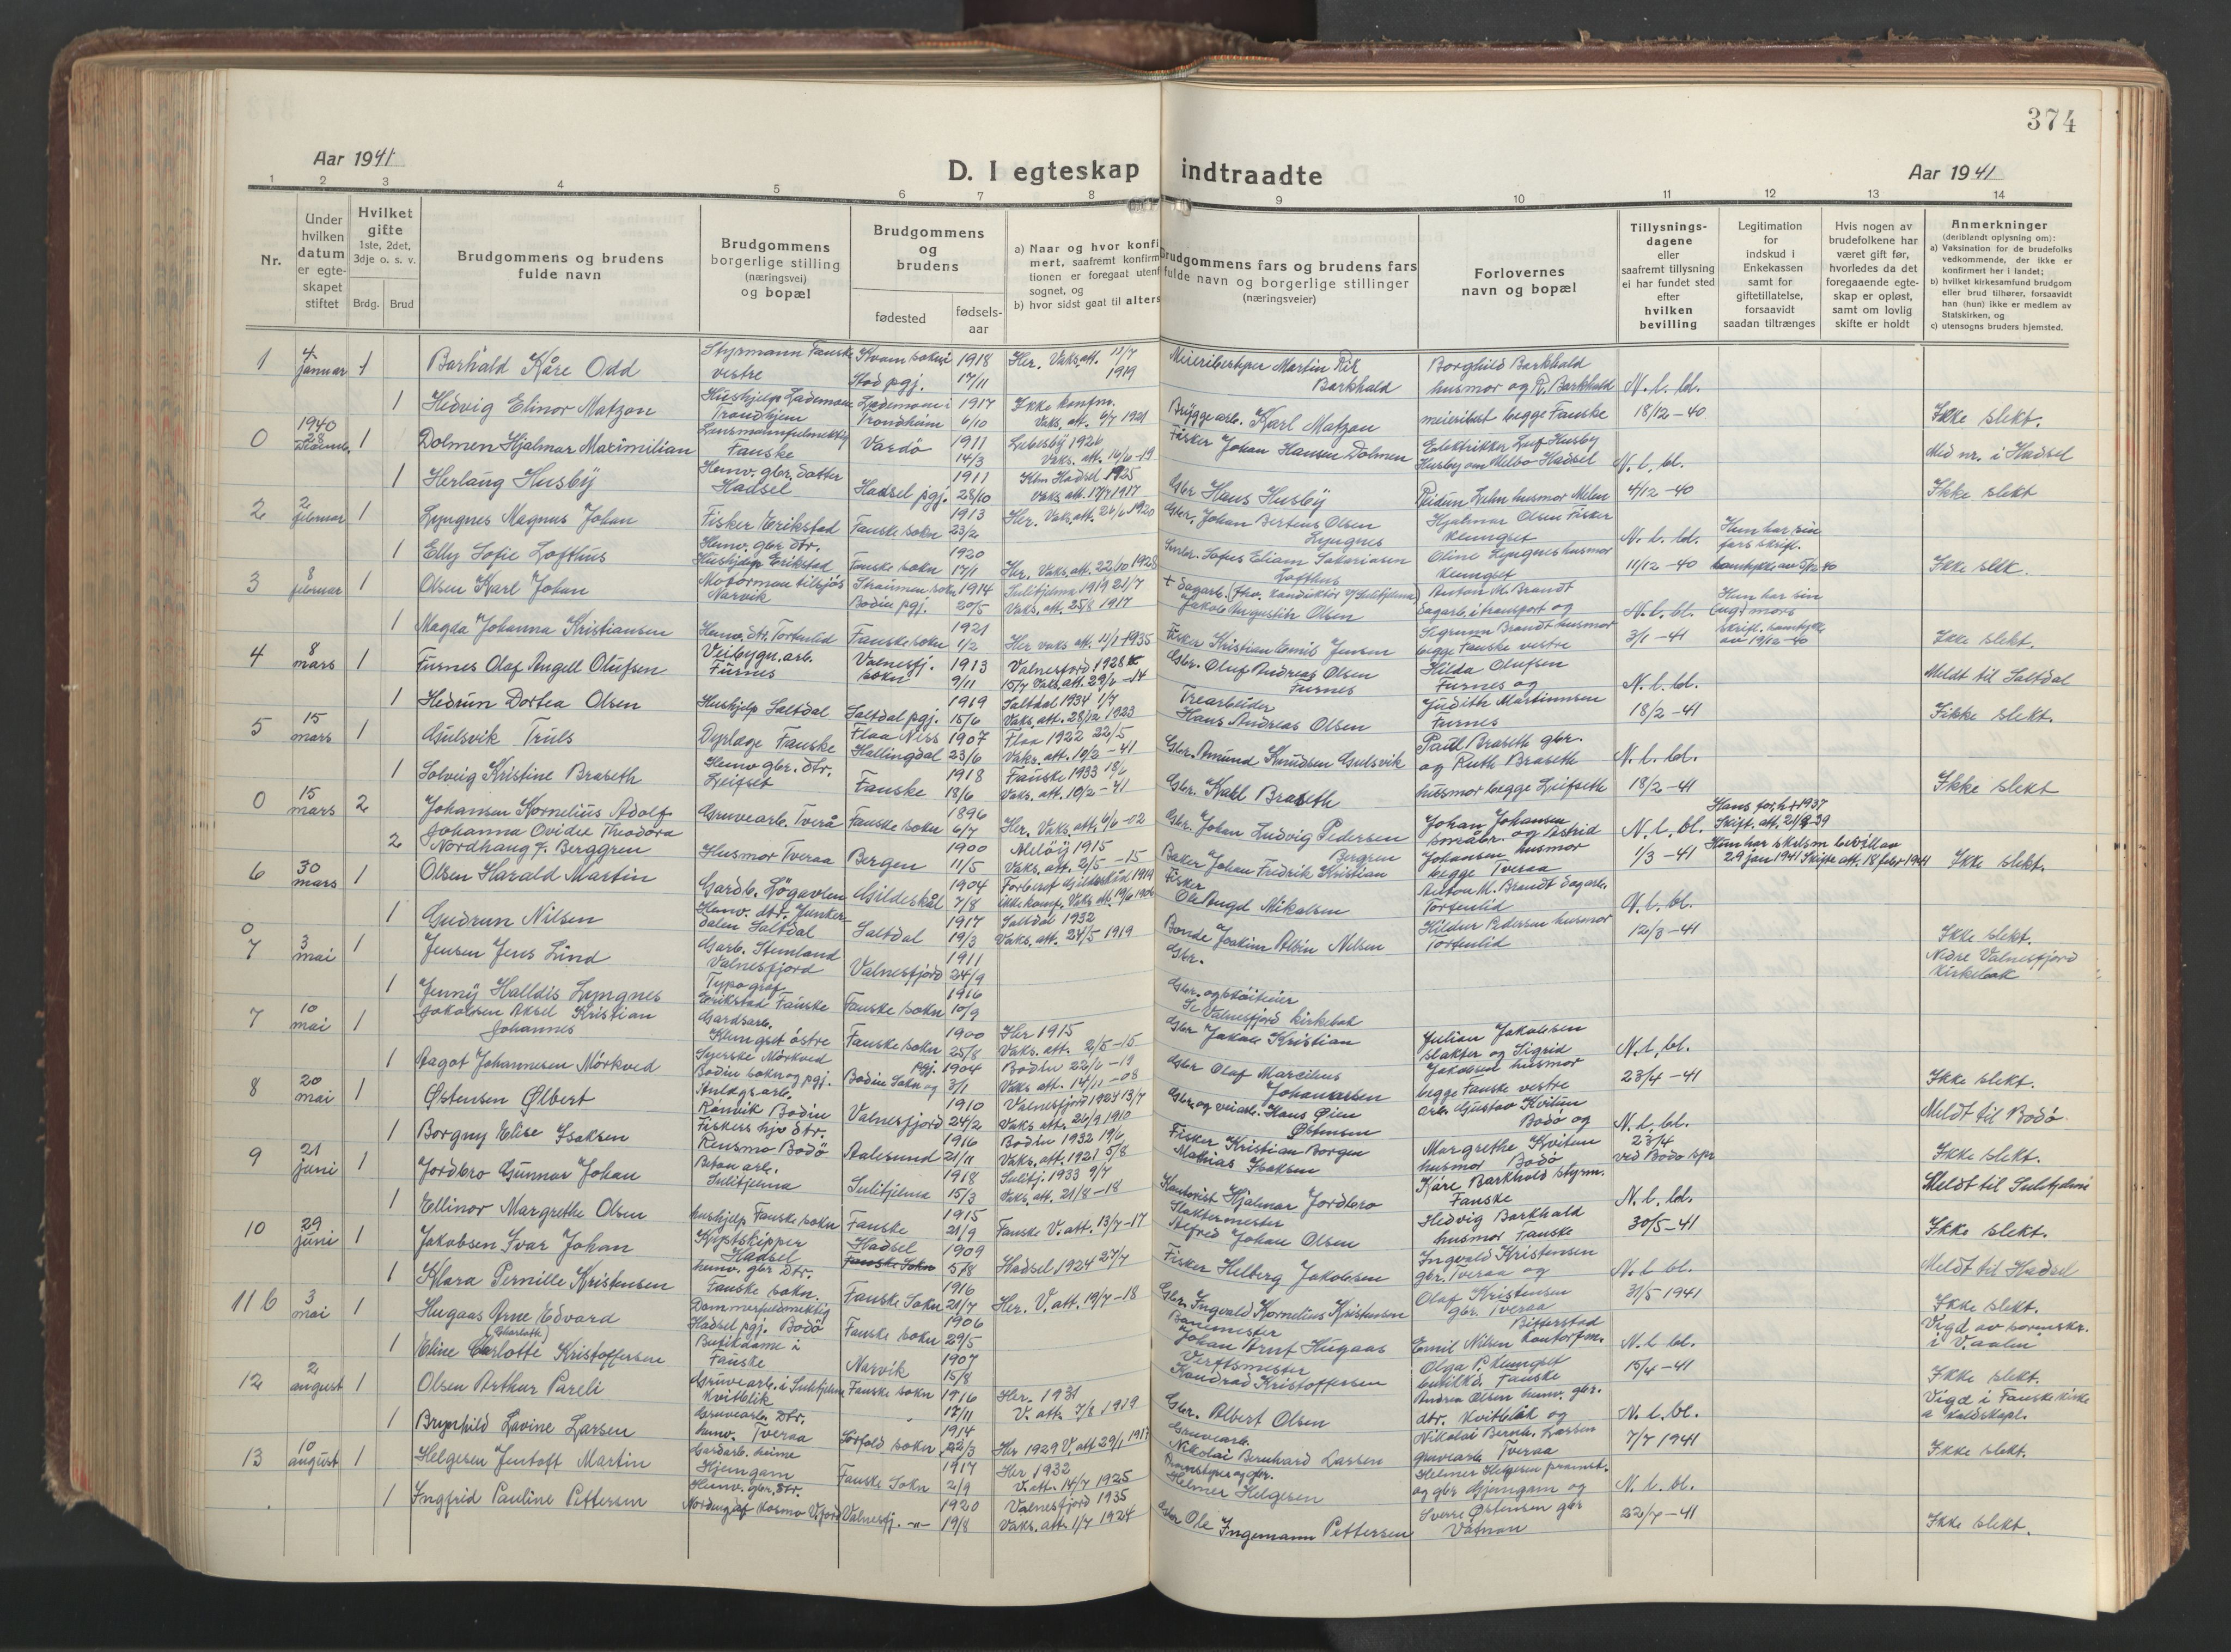 374
Aar 1941
D. I egteskap indtraadte
Aar 1941
1 2 3 4 5 6 7 8 9 10 11 12 13 14
Nr.
Under hvilken datum er egte-skapet stiftet
Hvilket gifte
1ste, 2det, 3dje o. s. v.
Brdg. Brud
Brudgommens og brudens fulde navn
Brudgommens borgerlige stilling (næringsvei) og bopæl
Brudgommens og brudens
fødested
fødsels-aar
a) Naar og hvor konfi
mert, saafremt konfirm
tionen er foregaat utenf
sognet, og
b) hvor sidst gaat til alters
Brudgommens fars og brudens fars
fulde navn og borgerlige stillinger
(næringsveier)
Forlovernes navn og bopæl
Tillysnings-dagene eller saafremt tillysning ei har fundet sted efter hvilken bevilling
Legitimation for indskud i Enkekassen samt for giftetillatelse, forsaavidt saadan tiltrænges
Hvis nogen av brudefolkene har været gift før, hvorledes da det foregaaende egte-skap er opløst, samt om lovlig skifte er holdt
Anmerkninger
(deriblandt oplysning om):
a) Vaksination for de brudefolks vedkommende, der ikke er konfirmert her i landet;
b) hvilket kirkesamfund brudgom eller brud tilhører, forsaavidt han (hun) ikke er medlem av Statskirken, og
c) utensogns bruders hjemsted.
1 4 januar 1 Barhald Kåre Odd Styrmann Fauske vestre Kvam sokn i Stod pgj. 1918 17/11 Her. Vaks. att. 11/7 1919 Martin Barkhald Borghild Barkhald husmor og Barkhald N. l. bl.
1 Hedvig Elinor Matzon Hushjelp Lademoen Trondhjem Lademoen i Trondheim 1917 6/10 Ikke konfm. Vaks. att. 6/7 1921 Bryggearb. Karl Matzon begge Fauske 18/12-40 Ikke slekt.
0 1940 28 1 Dolmen Hjalmar Maximilian Lensmannfulmektig Fauske Vardö 1911 14/3 Lebesby 1926 Vaks. att. 16/6-19 Fisker Johan Hansen Dolmen Husby N. l. bl. Med nr. i Hadsel
1 Herlaug Husby Hemv. gbr. datter Hadsel Hadsel pgj. 1911 28/10 Hadsel 1925 Vaks att. 17/7 1917 Gbr Hans Husby husmor Melen 4/12-40 Ikke slekt
2 2 februar 1 Lyngnes Magnus Johan Fisker Erikstad Fauske sokn 1913 23/2 Her. Vaks. att. 26/6 1920 Gbr. Johan Berteus Olsen Lyngnes Hjalmar Olsen Fisker Klungset N. l. bl. Hun har sin fars skrifl.
1 Elly Sofie Lofthus Hemv. gbr. dtr. Hushjelp Erikstad Fauske sokn 1920 17/1 Her. Vaks. att. 22/10 1928 Sofus Eliam Sakariasen Lofthus Oline Lyngnes husmor Klungset 11/12-40 Ikke slek.
3 8 februar 1 Olsen Karl Johan Narvik Bodin pgj. 1914 20/5 Sulitjelma 1919 21/7 Vaks. att. 25/8 1917 Jakob Augustin Olsen Anton M. Brandt dagarb. i transport og N. l. bl. Hun har sin mors
1 Magda Johanna Kristiansen Hemv. dtr. Tortenlid Fauske sokn 1921 1/2 Her vaks att. 11/1-1935 Fisker Kristian Emil Jensen Brandt husmor begge Fauske vestre 3/1-41 skrifl. samtykke av 19/12-40 Ikke slekt.
4 8 mars 1 Furnes Olaf Angell Olufsen Veibygn. arb. Furnes Valnesfj. sokn 1913 9/11 Valnesfjord 1928 15/7 Vaks. att. 29/6-14 Gbr. Oluf Andreas Olsen Furnes Hilda Olufsen Furnes og N. l. bl. Meldt til Saltdal
1 Hedrun Dortea Olsen Hushjelp Saltdal Saltdal pgj. 1919 15/6 Saltdal 1934 1/7 Vaks. att. 28/12 1923 Trearbeider Hans Andreas Olsen Judith Martinussen Furnes 18/2-41 Ikke slekt.
5 15 mars 1 Gulsvik Truls Dyrlæge Fauske Flaa Ness Hallingdal 1907 23/6 Flaa 1922 22/5 Vaks. att. 10/2-41 Gbr. Amund Knudsen Gulsvik Paul Braseth gbr. og Ruth Braseth N. l. bl.
1 Solveig Kristine Braseth Hemv gbr. dtr. Leifset Fauske 1918 18/6 Fauske 1933 18/6 Vaks. att. 10/2-41 Gbr. Karl Braseth husmor begge Leifseth 18/2-41 Ikke slekt
0 15 mars 2 Johansen Kornelius Adolf Gruvearb. Tverå Fauske sokn 1896 6/7 Her. Vaks. att. 6/6-02 Gbr. Johan Ludvig Pedersen Johan Johansen småbr. og Astrid N. l. bl.
2 Johanna Ovidie Theodora Nordhaug f. Berggren Husmor Tveraa Bergen 1900 11/5 Meløy 1915 Vaks. att. 2/5-15 Baker Johan Fredrik Kristian Bergren Johansen husmor begge Tveraa 1/3-41 Ikke slekt.
6 30 mars 1 Olsen Harald Martin Gardb. Løgavlen Gildeskål 1904 7/8 Fisker Ole Augd Mikalsen Anton M. Brandt dagarb. Tortenlid N. l. bl.
1 Gudrun Nilsen Hemv. dtr. Junkerdalen Saltdal Saltdal 1917 19/3 Saltdal 1932 Vaks. att. 24/5 1919 Bonde Joakim Albin Nilsen Hildur Pedersen husmor Tortenlid 12/3-41 Ikke slekt.
0 7 3 mai 1 Jensen Jens Lind Garb. Stemland Valnesfjord Valnesfjord 1911 24/9 Gbr. Nedre Valnesfjord kirkebok
1 Jenny Halldis Lyngnes Typograf Erikstad Fauske Fauske sokn 1916 10/9 Se Valnesfjord kirkebok
7 10 mai 1 Jakobsen Aksel Kristian Johannes Gardsarb. Klungset østre Fauske sokn 1900 25/8 Her 1915 Vaks. att. 2/5-15 Gbr Jakob Kristian Julian Jakobsen slakter og Sigrid N. l. bl.
1 Aagot Johannesen Mörkved Syerske Mörkved Bodin sokn og pgj. Bodin Sokn og pgj. 1904 3/1 Bodin 22/6-19 Vaks att. 14/11-08 Gbr Olaf Marcilius Johannessen Jakobsen husmor begge Fauske vestre 23/4-41 Ikke slekt.
8 20 mai 1 Østensen Ølbert Anlægsarb. Rönvik Bodin Valnesfjord 1910 24/2 Valnesfjord 1924 13/7 Vaks att. 26/9 1910 Gbr og veiarb. Hans Øien Østensen arb. Gustav Kvitun Bodö og N. l. bl. Meldt til Bodö
1 Borgny Elise Isaksen Fiskers hjv dtr. Rensmo Bodö Aalesund 1916 21/11 Bodin 1932 19/6 Vaks. att. 1921 5/8 Fisker Kristian Borgen Mathias Isaksen Margrethe Kvitun husmor Bodö 23/4 ved Bodö spr Ikke slekt.
9 21 juni 1 Jordbro Gunnar Johan Beton arb. Sulitjelma Sulitjelma 1918 15/3 Sulitj. 1933 9/7 Vaks. att. 21/8-18 Hjalmar Jordbro Kåre Barkhald styrm. Fauske N. l. bl. Meldt til Sulitjelma
1 Ellinor Margrethe Olsen hushjelp Fauske sokn Fauske 1915 21/9 Fauske V. att. 13/7-17 Slaktermester Johan Olsen Hedvig Barkhald husmor Fauske 30/5-41 Ikke slekt.
10 29 juni 1 Jakobsen Ivar Johan Hadsel Hadsel Fauske Sokn 1909 5/8 Hadsel 1924 27/7 Fisker Helberg Jakobsen Ingvald Kristensen gbr. Tveraa og N. l. bl. Meldt til Hadsel
1 Klara Pernille Kristensen hemv. gbr dtr. Fauske sokn. Fauske Sokn 1916 21/7 Her. V. att. 19/7-18 Gbr. Ingvald Kornelius Kristensen Olaf Kristensen gbr. Tveraa 31/5 1941 Ikke slekt.
11 b 3 mai 1 Hugaas Arne Edvard Dommerfuldmektig Hadsel pgj. Bodö Fauske sokn 1906 29/5 Banemester Johan Arnt Hugaas Emil Nilsen kontorfm. N. l. bl. Vigd av sorenskr. i Vaalin
1 Eline Carlotte (Charlotte) Kristoffersen Butikdame i Fauske Narvik 1907 15/8 Verftsmester Kondrad Kristoffersen Olga P. Klungset butikkd. Fauske 15/4-41 Ikke slekt.
12 2 august 1 Olsen Arthur Pareli Gruvearb. i Sulitjelma Kvitblik Fauske sokn 1916 17/11 Her. 1931 V. att. 7/8 1919 Gbr. Albert Olsen Andrea Olsen hemv. gbr. dtr. Kvitblik og N. l. bl. Vigd i Fauske kirke
1 Brynhild Lovine Larsen Gruvearb. dtr. hemv. Tveraa Sørfold sokn 1914 22/3 Her 1929 V. att 29/1 1917 Gruvearb. Nikolai Bernhard Larsen Nikolai Bernh. Larsen gruvearb. Tveraa 7/7 1941 Ikke slekt.
13 10 august 1 Helgesen Jentoft Martin Gardarb. heime Hjemgam Fauske Sokn 1917 2/9 Her 1932 V. att. 14/7 1925 Helmer Helgesen Helmer Helgesen og gbr Gjemgam og N. l. bl.
1 Ingfrid Pauline Pettersen Hemv. gbr. dtr. Kosmo V.fjord Valnesfj. -"- 1920 19/8 Valnesfjord 1935 Vaks. att. 1/7 1924 Gbr Ole Ingemann Pettersen Sverre Østensen gbr Vatnan 22/7-41 Ikke slekt.